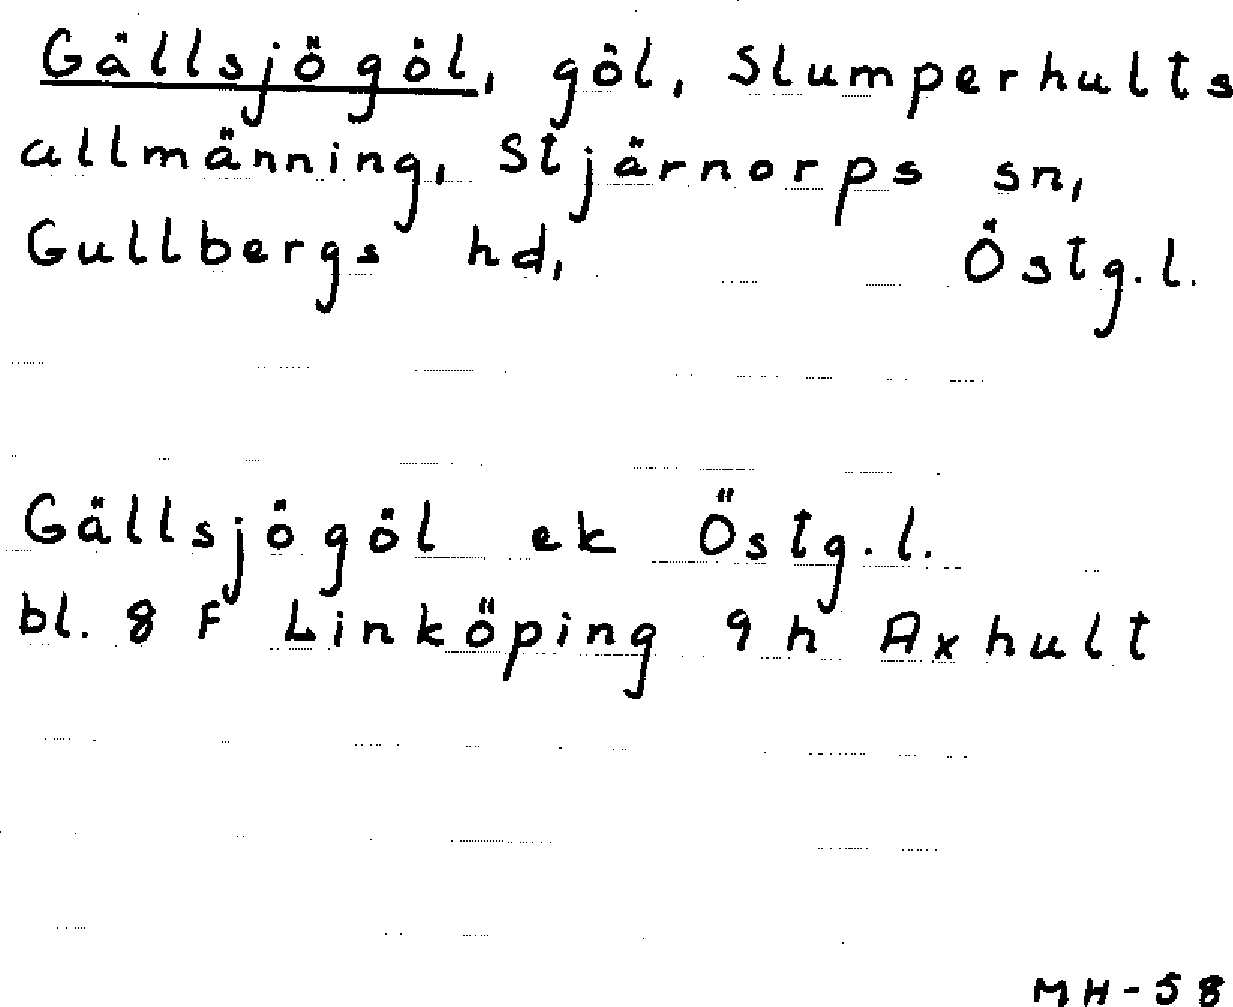 Gällsjögöl, göl, Slumperhults
allmänning, Stjärnorps sn,
Gullbergs hd, Östg.l.
Gällsjögöl ek Östg.l.
bl. 8 F Linköping 9 h Axhult
MH-58